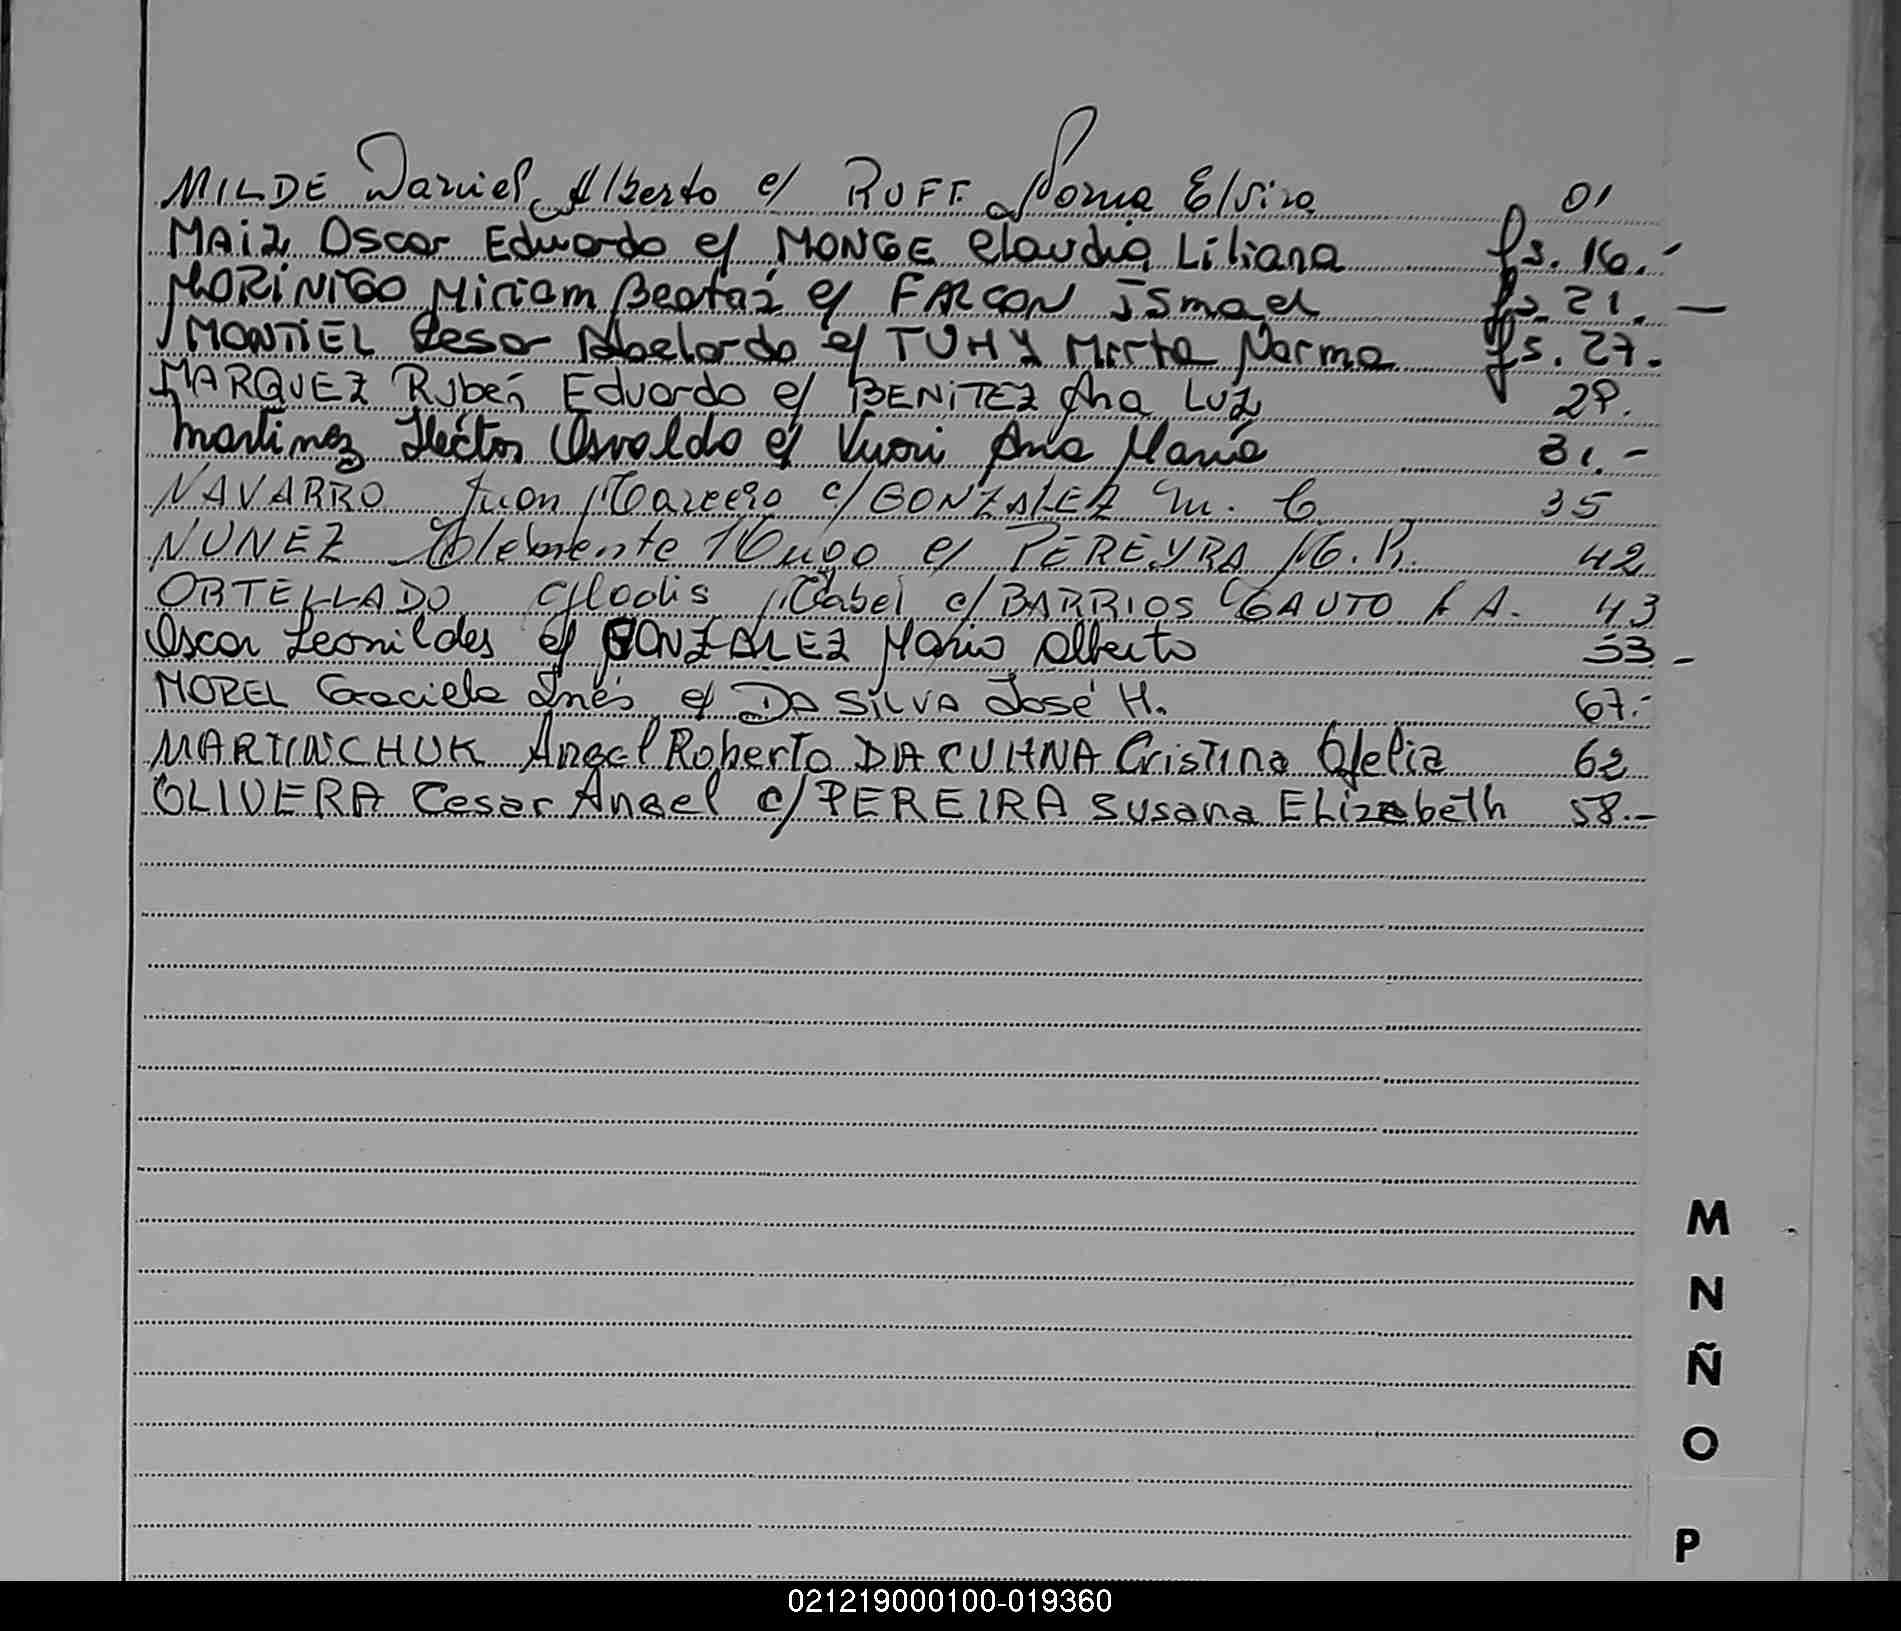 MILDE Daniel Alberto c/ RUFF. Norma Elvira 01
MAIZ Oscar Eduardo c/ MONGE Claudia Liliana fs. 16.-
MORINIGO Miriam Beatriz c/ FALCON Ismael fs. 21. —
MONTIEL Cesar Abelardo c/ TUHY Mirta Norma fs. 27.
MARQUEZ Rubén Eduardo c/ BENITEZ Ana Luz 29.
Martinez Héctor Osvaldo c/ Vuori Ana María 31.-
NAVARRO Juan Marcelo c/ GONZALEZ M. C. 35
NUNEZ Clemente Hugo c/ PEREYRA M. P. 42
ORTELLADO Gladis Mabel c/ BARRIOS GAUTO A. 43
Oscar Leonildes c/ GONZALEZ Mario Alberto 53 -
MOREL Graciela Inés c/ DA SILVA José H. 67.-
MARTINCHUK Angel Roberto DA CUHNA Cristina Ofelia 62
OLIVERA Cesar Angel c/ PEREIRA Susana Elizabeth 58.-
M
N
Ñ
O
P
021219000100-019360